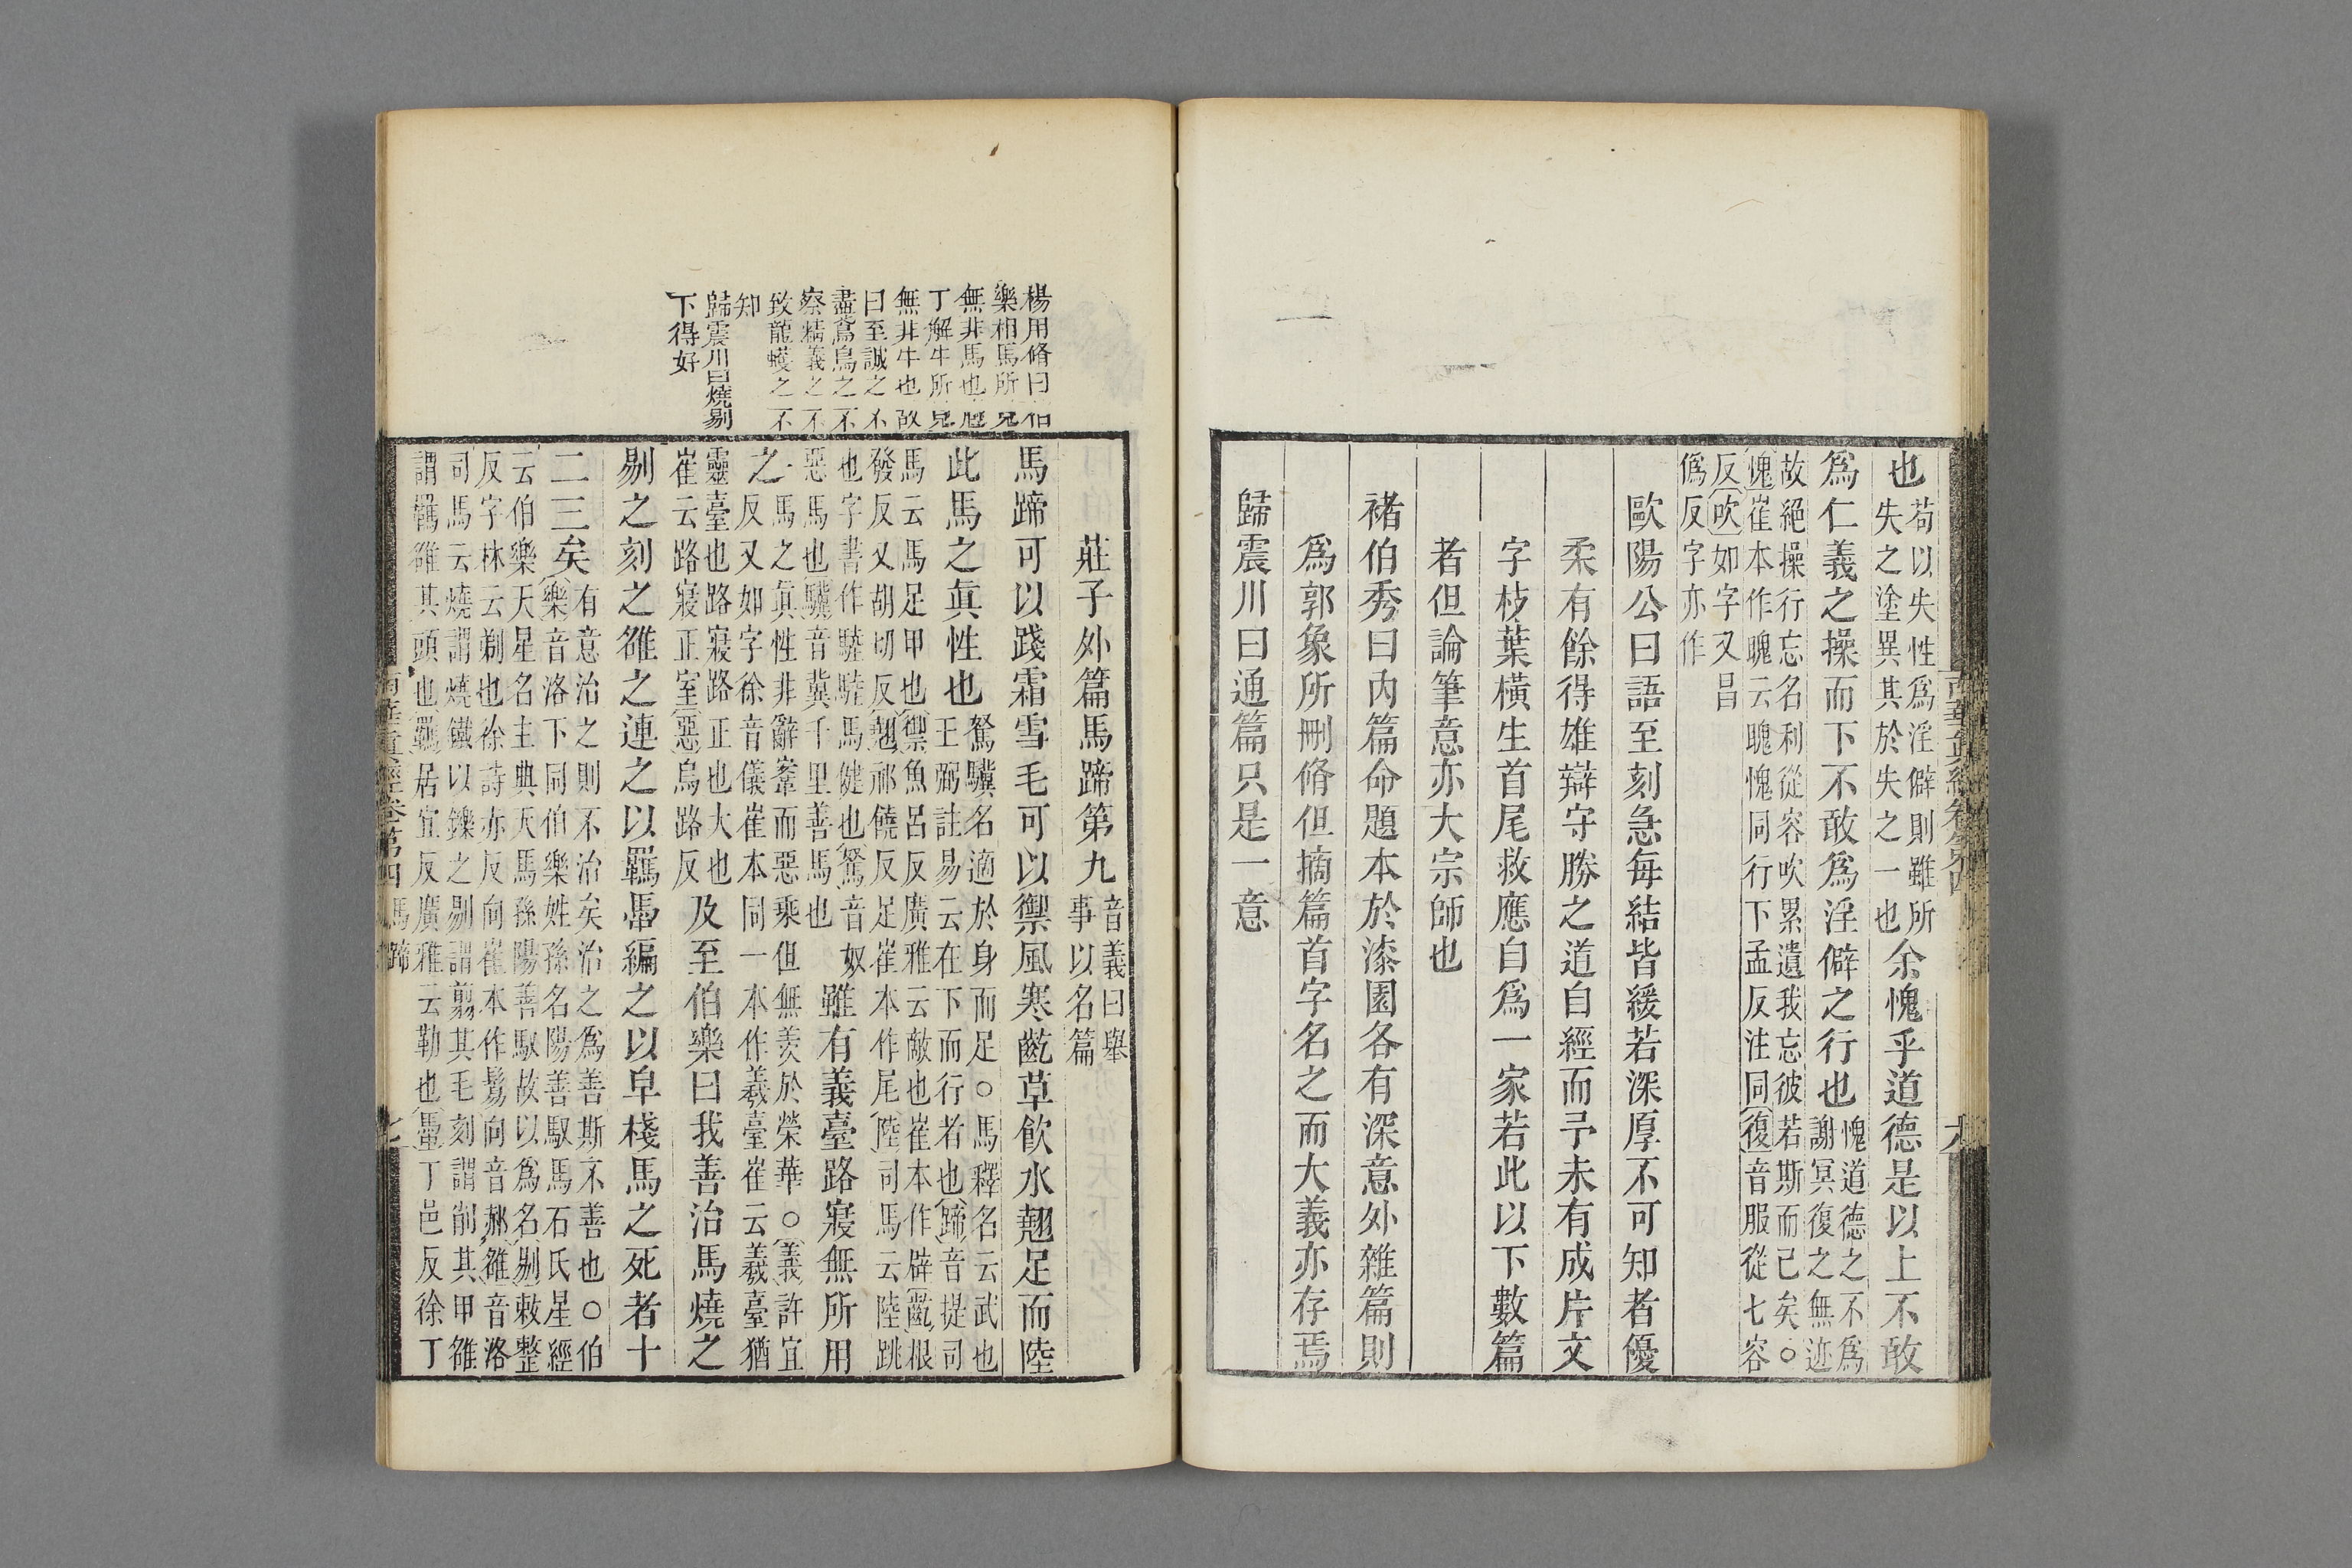 也苟以失性爲淫僻則雖所失之塗異其於失之一也余愧乎道德是以上不敢
爲仁義之操而下不敢爲淫僻之行也愧道德之不爲謝冥復之無迹
故絕操行忘名利從容吹累遺我忘彼若斯而已矣○
愧崔本作聭云聭愧同行下孟反注同復音服從七容
反吹如字又昌
僞反字亦作
歐陽公曰語至刻急每結皆緩若深厚不可知者優
柔有餘得雄辯守勝之道自經而子未有成片文
字枝葉橫生首尾救應自爲一家若此以下數篇
者但論筆意亦大宗師也
褚伯秀曰內篇命題本於漆園各有深意外雜篇則
爲郭象所刪脩但摘篇首字名之而大義亦存焉
歸震川曰通篇只是一意
楊用脩曰伯
樂相馬所見
無非馬也庖
丁解牛所見
無非牛也故
曰至誠之不
盡鳶鳥之不
察精義之不
致龍蠖之不
知
歸震川曰燒剔
下得好
莊子外篇馬蹄第九音義曰舉事以名篇
馬蹄可以踐霜雪毛可以禦風寒齕草飮水翹足而陸
此馬之眞性也駑驥名適於身而足○馬釋名云武也王弼註易云在下而行者也蹄音提司
馬云馬足甲也禦魚呂反廣雅云敵也崔本作辟齕根
發反又胡切反翹祁饒反足崔本作尾陸司馬云陸跳
也字書作䮚䮚馬健也駑音奴惡馬也驥音冀千里善馬也雖有義臺路寢無所用
之馬之眞性非辭鞌而惡乘但無羨於榮華○義許宜反又如字徐音儀崔本同一本作羲臺崔云羲臺猶
靈臺也路寢路正也大也崔云路寢正室惡烏路反及至伯樂曰我善治馬燒之
剔之刻之雒之連之以羈馽編之以皁棧馬之死者十
二三矣有意治之則不治矣治之爲善斯不善也○伯樂音洛下同伯樂姓孫名陽善馭馬石氏星經
云伯樂天星名主典天馬孫陽善馭故以爲名剔敕整
反字林云剃也徐詩亦反向崔本作鬄向音郝雒音洛
司馬云燒謂燒鐵以鑠之剔謂翦其毛刻謂削其甲雒
謂羈雒其頭也羈居宜反廣雅云勒也馽丁邑反徐丁